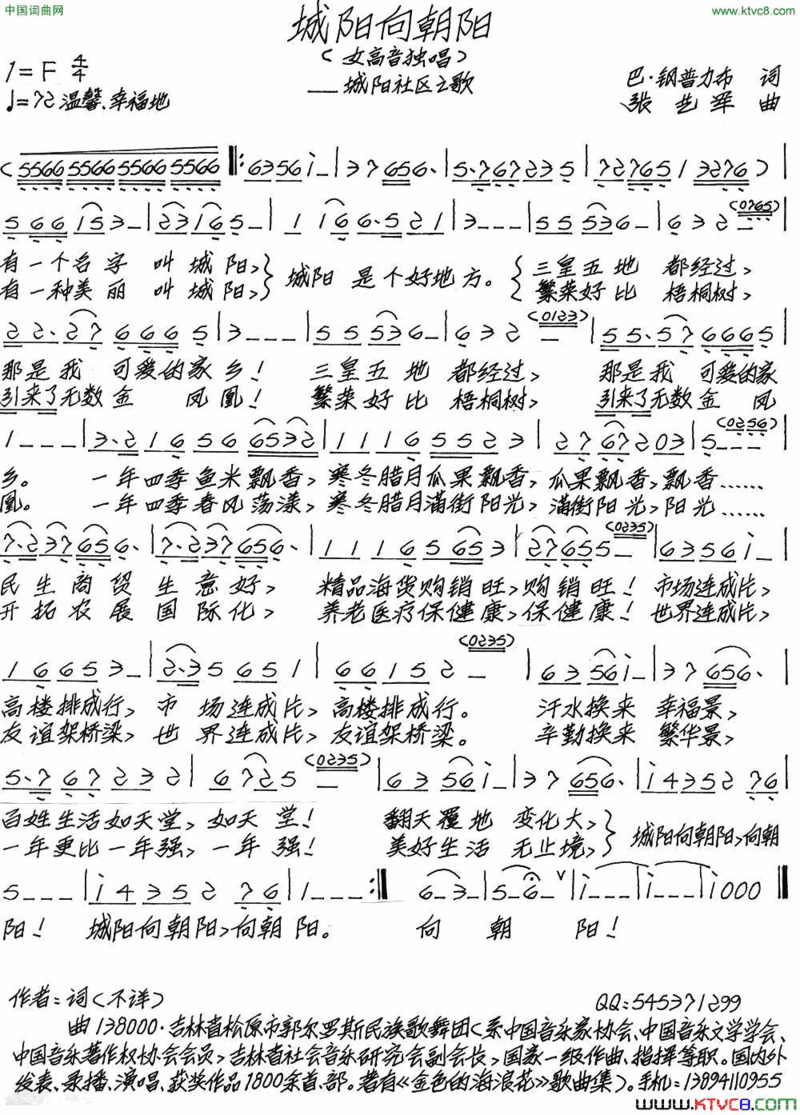 中国词曲网
www.ktvc8.com
城阳向朝阳
（女高音独唱）
——城阳社区之歌
1=F 4/4
♩=72 温馨、幸福地
巴·钢普力布 词
张艺军 曲
(5566 5566 5566 5566 ‖: 6356 i - | 3 7 656· | 5·767235 | 7276513276)
566 153 - | 23165 - | 1 166·521 | 3 - - - | 55536 - | 632 - (0765)
有一个名字 叫城阳，城阳 是个好地方。 三皇五地 都经过，
有一种美丽 叫城阳， 繁荣好比 梧桐树，
22·27 6665 | 3 - - - | 55536 - | 632 - (0123) | 55·57 6665
那是我 可爱的家乡！ 三皇五地 都经过， 那是我 可爱的家
引来了无数金 凤凰！ 繁荣好比 梧桐树， 引来了无数金 凤
1 - - - | 3·21656 6532 | 11165523 | 2767203 | 5 - - - (0256)
乡。 一年四季鱼米飘香，寒冬腊月瓜果飘香，瓜果飘香，飘香……
凰。 一年四季春风荡漾，寒冬腊月满街阳光，满街阳光，阳光……
7·237656· | 7·237656· | 11165653 | 27655 - (0235) | 6356i - |
民生商贸生意好， 精品海货购销旺，购销旺！ 市场连成片，
开拓农展国际化， 养老医疗保健康，保健康！ 世界连成片，
16653 - | 2·35651 | 66152 - (0235) | 6356i - | 37656· |
高楼排成行，市 场连成片，高楼排成行。 汗水换来 幸福景，
友谊架桥梁，世 界连成片，友谊架桥梁。 辛勤换来 繁华景，
5·767232 | 6725 - (0235) | 6356i - | 37656· | i435276
百姓生活如天堂，如天 堂！ 翻天覆地 变化大， 城阳向朝阳，向朝
一年更比一年强，一年 强！ 美好生活 无止境，
5 - - - | i435276 | 1 - - - :‖ 6 - 3 - | 5 - 6 - ∨ | i - - - | i - - - | i000 ‖
阳！ 城阳向朝阳，向朝阳。 向 朝 阳！
作者：词（不详）
QQ：545371299
曲 138000·吉林省松原市郭尔罗斯民族歌舞团（系中国音乐家协会、中国音乐文学学会、
中国音乐著作权协会会员，吉林省社会音乐研究会副会长，国家一级作曲、指挥等职。国内外
发表、录播、演唱、获奖作品1800余首、部。著有《金色的海浪花》歌曲集）。手机：13894110955
www.KTVC8.com